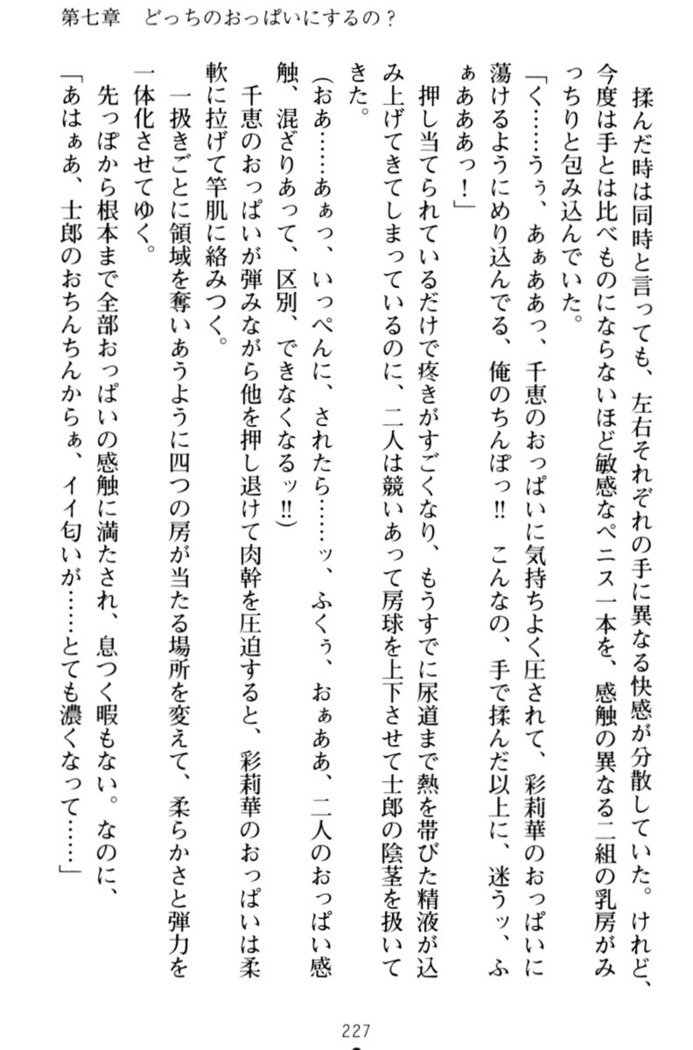 第七章　どっちのおっぱいにするの？
　揉んだ時は同時と言っても、左右それぞれの手に異なる快感が分散していた。けれど、
今度は手とは比べものにならないほど敏感なペニス一本を、感触の異なる二組の乳房がみ
っちりと包み込んでいた。
「く……うぅ、あぁああっ、千恵のおっぱいに気持ちよく圧されて、彩莉華のおっぱいに
蕩けるようにめり込んでる、俺のちんぽっ!!　こんなの、手で揉んだ以上に、迷うッ、ふ
ぁあああっ！」
　押し当てられているだけで疼きがすごくなり、もうすでに尿道まで熱を帯びた精液が込
み上げてきてしまっているのに、二人は競いあって房球を上下させて士郎の陰茎を扱いて
きた。
（おあ……あぁっ、いっぺんに、されたら……ッ、ふくぅ、おぁああ、二人のおっぱい感
触、混ざりあって、区別、できなくなるッ!!）
　千恵のおっぱいが弾みながら他を押し退けて肉幹を圧迫すると、彩莉華のおっぱいは柔
軟に拉げて竿肌に絡みつく。
　一扱きごとに領域を奪いあうように四つの房が当たる場所を変えて、柔らかさと弾力を
一体化させてゆく。
　先っぽから根本まで全部おっぱいの感触に満たされ、息つく暇もない。なのに、
「あはぁあ、士郎のおちんちんからぁ、イイ匂いが……とても濃くなって……」
227